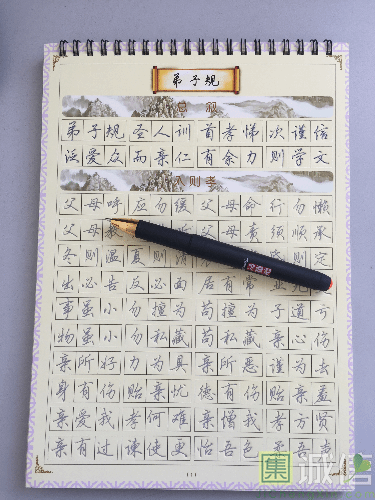 弟子规
总叙
弟子规圣人训首孝悌次谨信
泛爱众而亲仁有余力则学文
入则孝
父母呼应勿缓父母命行勿懒
父母父母责须顺承
冬则温夏则则定
出必告反必面居有常业无
事虽小勿擅为苟擅为子道亏
物虽小勿私藏苟私藏亲心伤
亲所好力为具亲所恶谨为去
身有伤贻亲忧德有伤贻亲羞
亲爱我孝何难亲憎我孝方贤
亲有过谏使更怡吾色柔吾声
集诚信